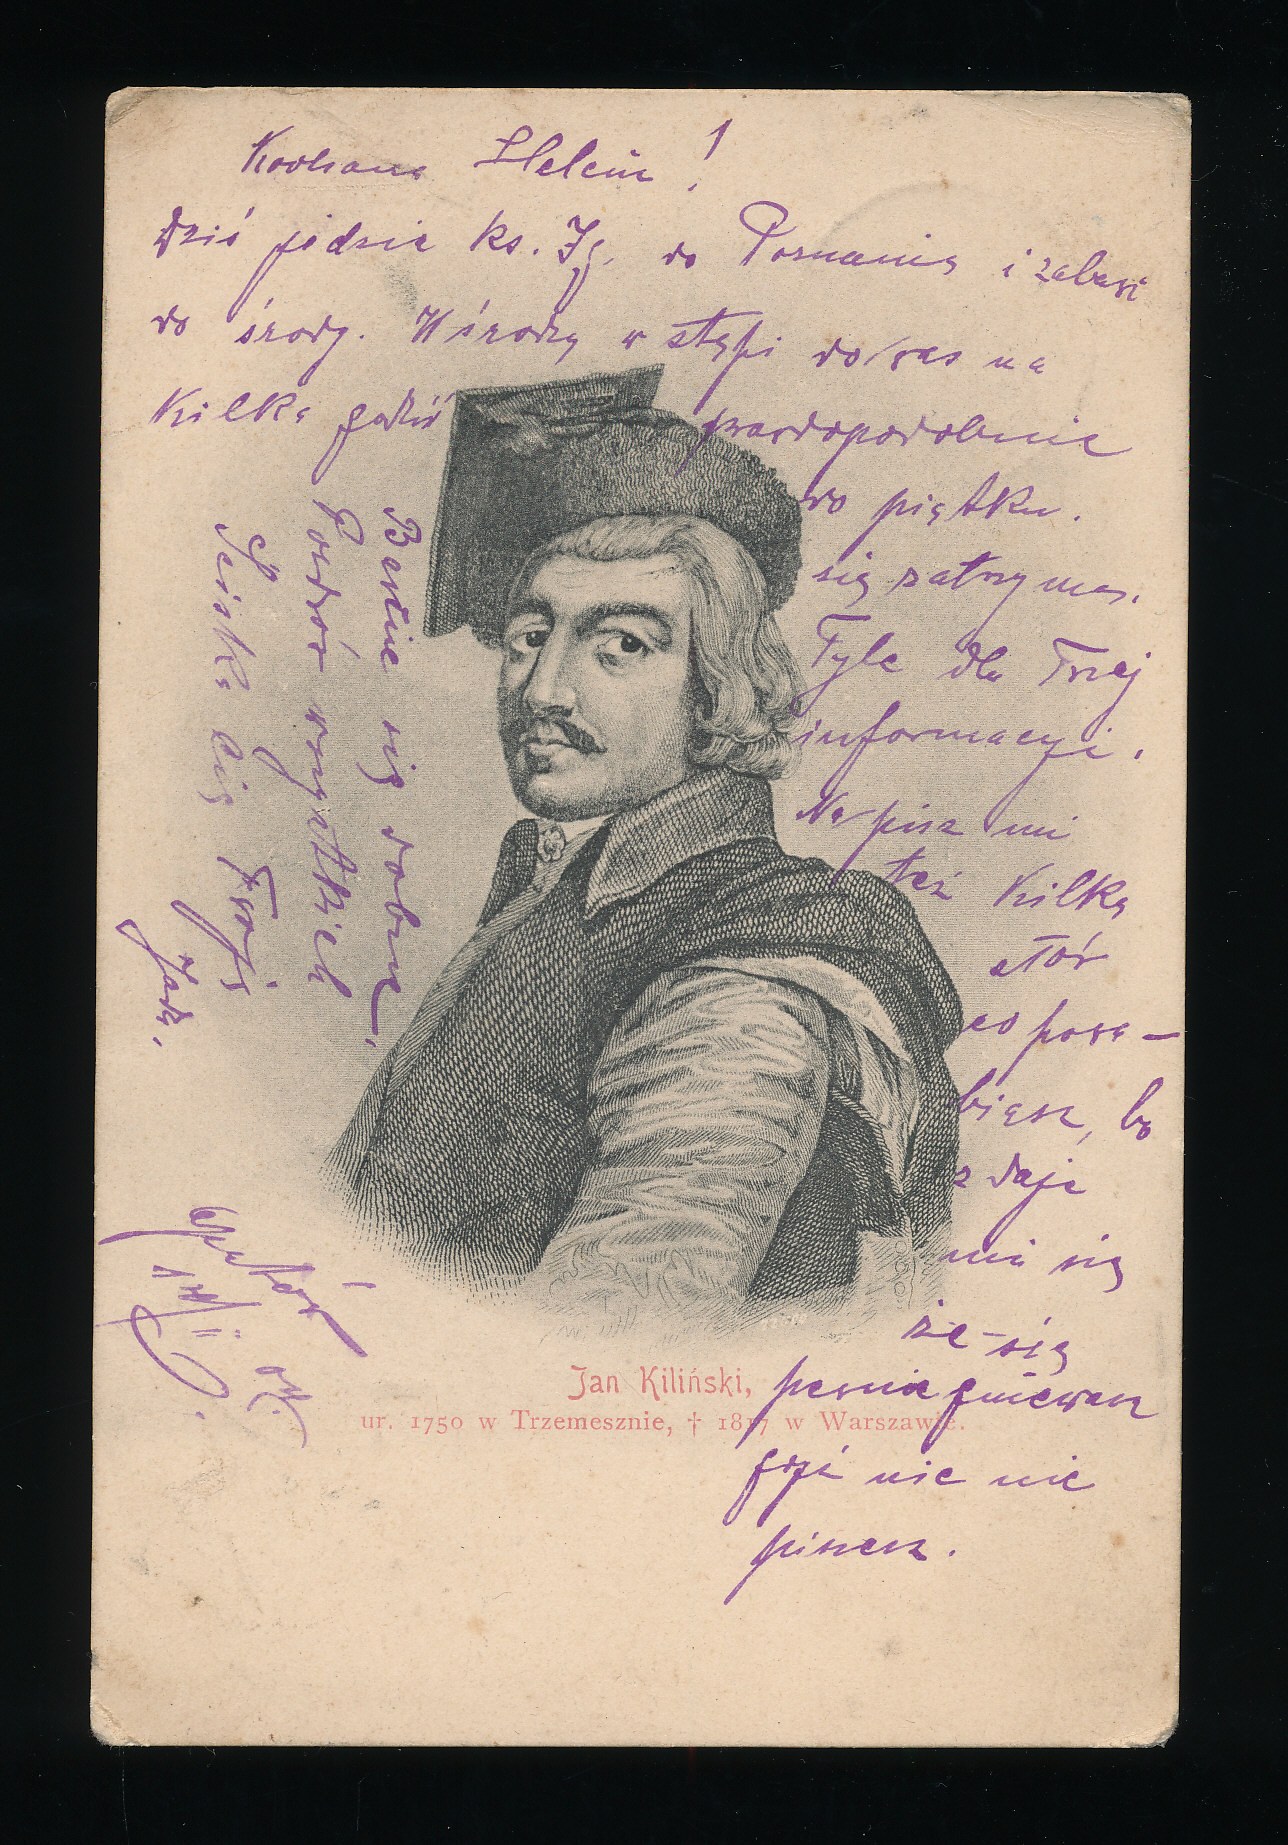 Kochana Helciu!
Dziś jedzie ks. Ig. do Poznania i zabawi
do środy. W środę wstąpi do was na
kilka godzin prawdopodobnie
do piątku.
się zatrzyma.
Tyle dla Twej
informacyi.
Napisz mi
też kilka
słów
co pora-
biasz, bo
zdaje
mi się
że się
pewnie gniewasz
gdyż nic nie
piszesz.
Bawcie się dobrze.
Pozdrów wszystkich
Ściska Cię Twój
Jan Kiliński,
ur. 1750 w Trzemesznie, † 1817 w Warszawie.